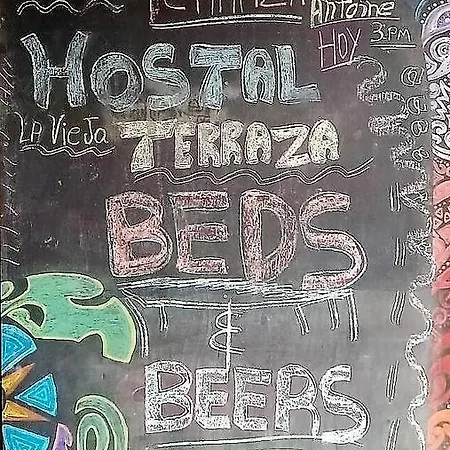 Antoine
HOY 3:PM
HOSTAL
LA VieJa TERRAZA
BEDS
&
BEERS